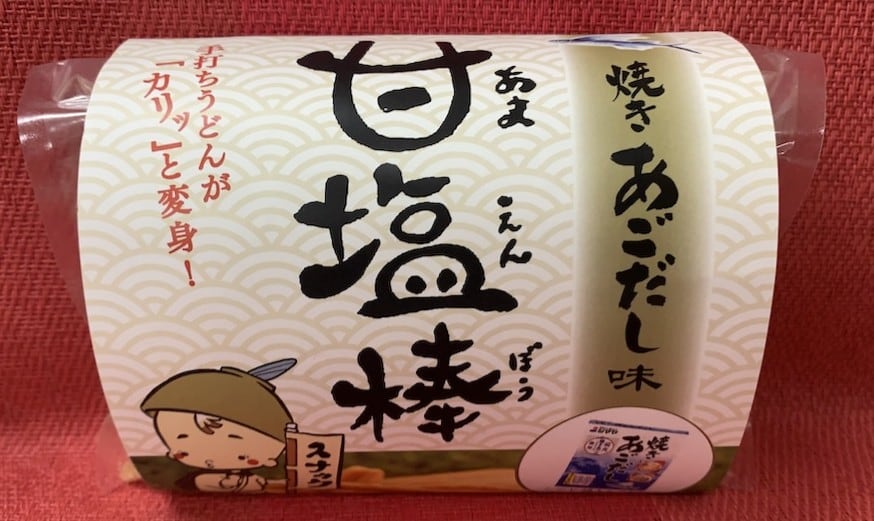 焼きあごだし味
甘塩棒
あまえんぼう
手打ちうどんが
「カリッ」と変身！
スナック
焼き
あごだし